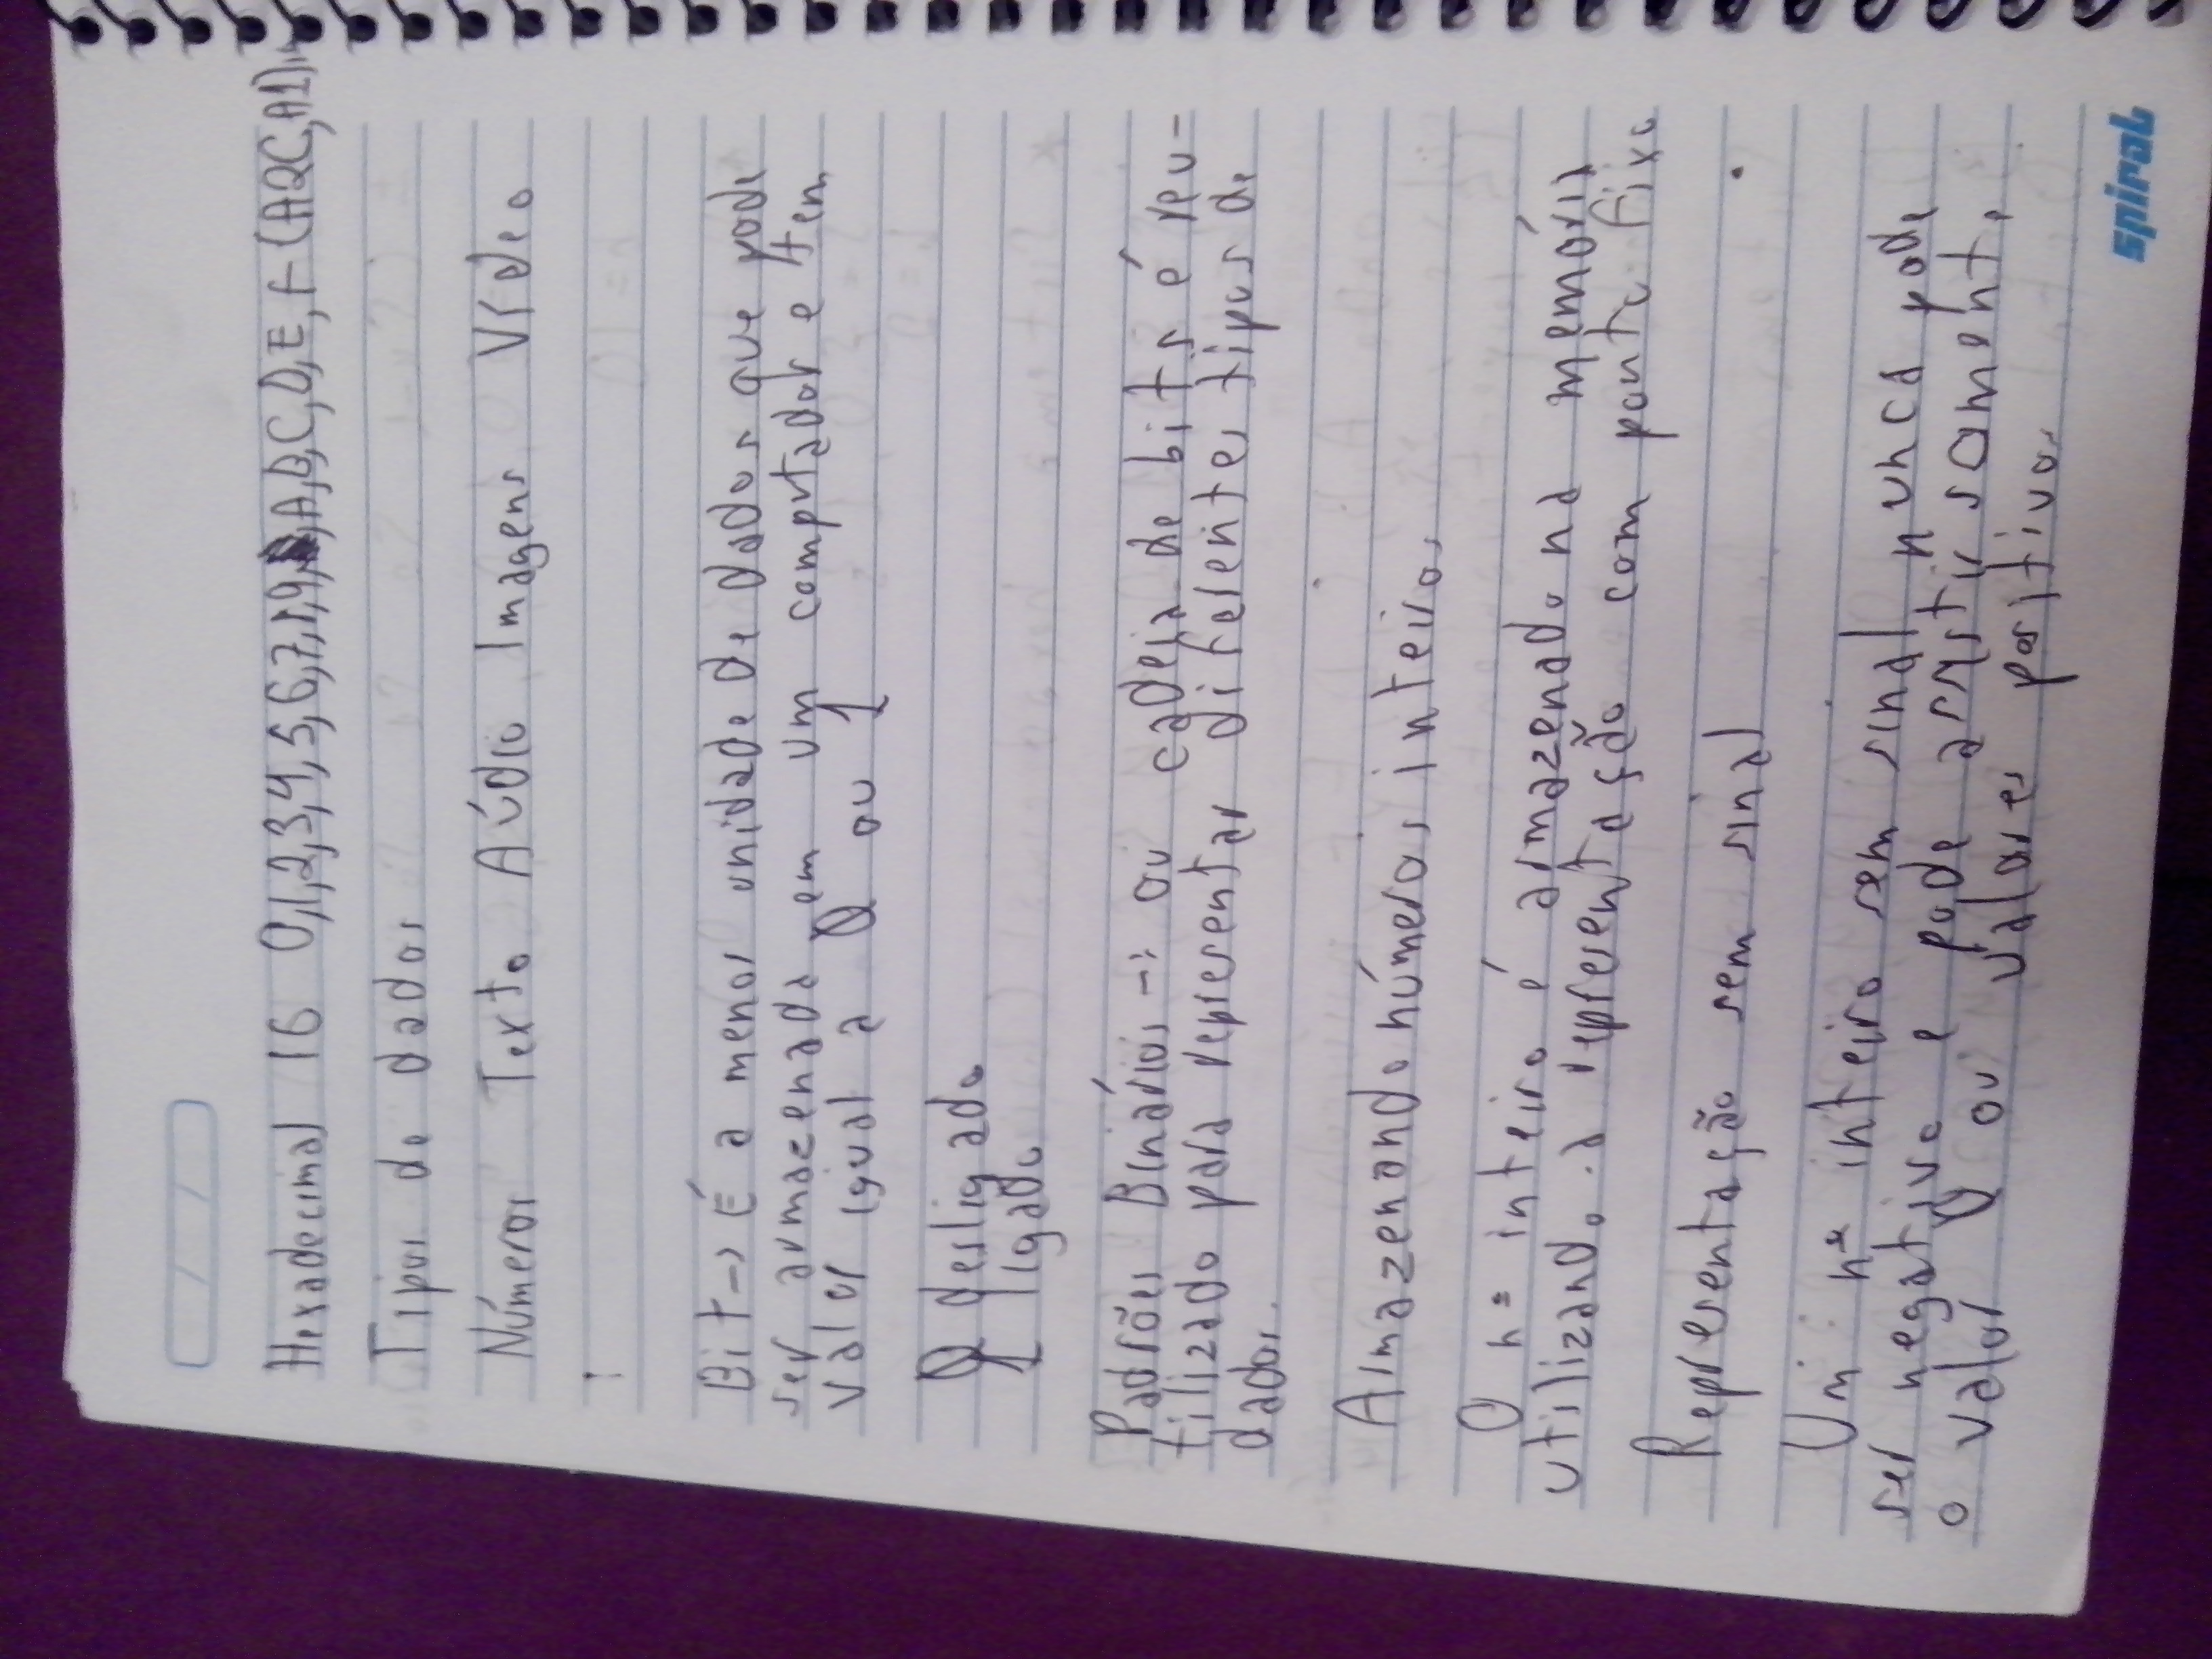 Hexadecimal 16 0,1,2,3,4,5,6,7,8,9,A,B,C,D,E,F (A2C,A1)16
Tipos de dados
Números Texto Aúdio Imagens Vídeo
Bit -> É a menor unidade de dados que pode
ser armazenada em um computador e tem
valor igual a 0 ou 1
0 desligado
1 ligado
Padrões Binários -> ou cadeia de bits é reu-
tilizado para representar diferentes tipos de
dados.
Armazenando números inteiros
O nº inteiro é armazenado na memória
utilizando a representação com ponto fixo
Representação sem sinal
Um nº inteiro sem sinal nunca pode
ser negativo e pode somente
o valor 0 ou valores positivos
spiral